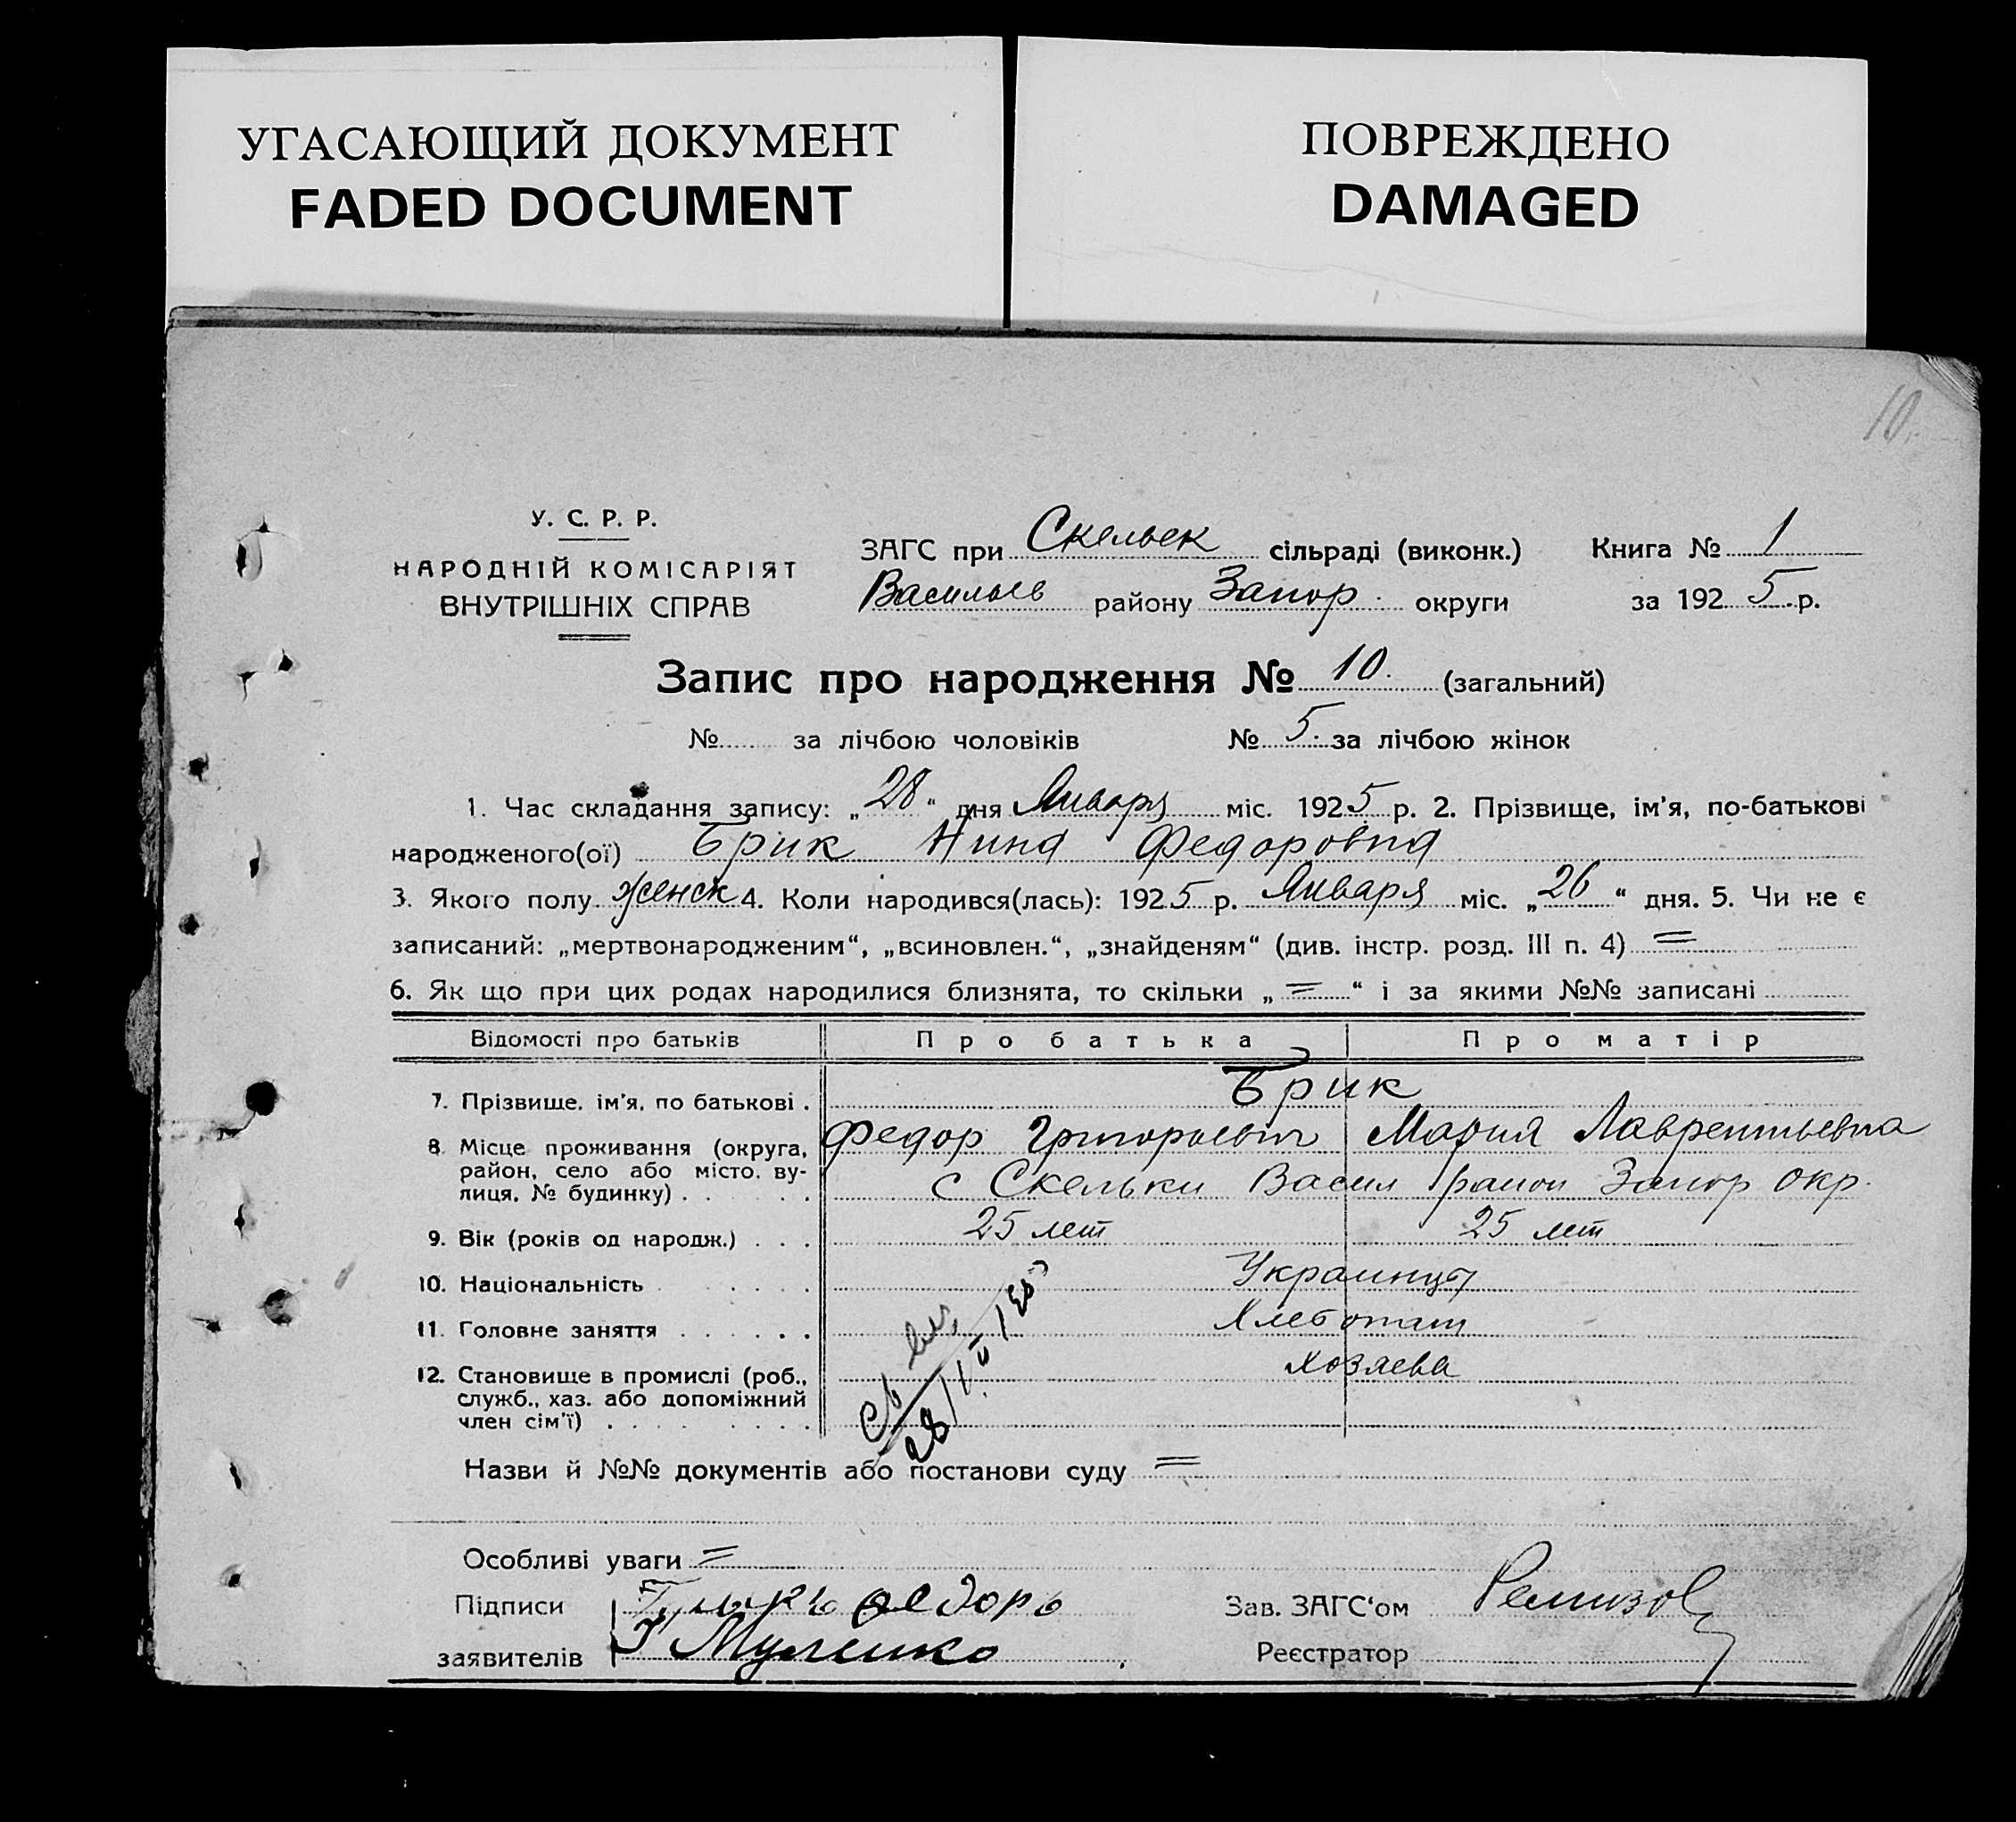 УГАСАЮЩИЙ ДОКУМЕНТ
FADED DOCUMENT
ПОВРЕЖДЕНО
DAMAGED
10.
У. С. Р. Р.
НАРОДНІЙ КОМІСАРІЯТ
ВНУТРІШНІХ СПРАВ
ЗАГС при Скельек сільраді (виконк.) Книга № 1
Васильев району Запор. округи за 1925 р.
Запис про народження № 10. (загальний)
№ за лічбою чоловіків № 5. за лічбою жінок
1. Час складання запису: „28“ дня Января міс. 1925 р. 2. Прізвище, ім'я, по-батькові
народженого(ої) Брик Нина Федоровна
3. Якого полу женск 4. Коли народився(лась): 1925 р. Января міс. „26“ дня. 5. Чи не є
записаний: „мертвонародженим“, „всиновлен.“, „знайденям“ (див. інстр. розд. III п. 4) =
6. Як що при цих родах народилися близнята, то скільки „=“ і за якими №№ записані
Відомості про батьків Про батька Про матір
7. Прізвище, ім'я, по батькові . Брик
Федор Григорьевич Мария Лаврентьевна
8. Місце проживання (округа,
район, село або місто, ву-
лиця, № будинку) . . . с Скельки Васил район Запор окр.
9. Вік (років од народж.) . . . 25 лет 25 лет
10. Національність . . . . Украинцы
11. Головне заняття . . . . . . Хлебопаш
12. Становище в промислі (роб., Хозяева
служб., хаз. або допоміжний
член сім'ї) . . . . . .
Назви й №№ документів або постанови суду =
Особливі уваги =
Підписи Федоръ Зав. ЗАГС'ом Ремизов
заявителів Реєстратор